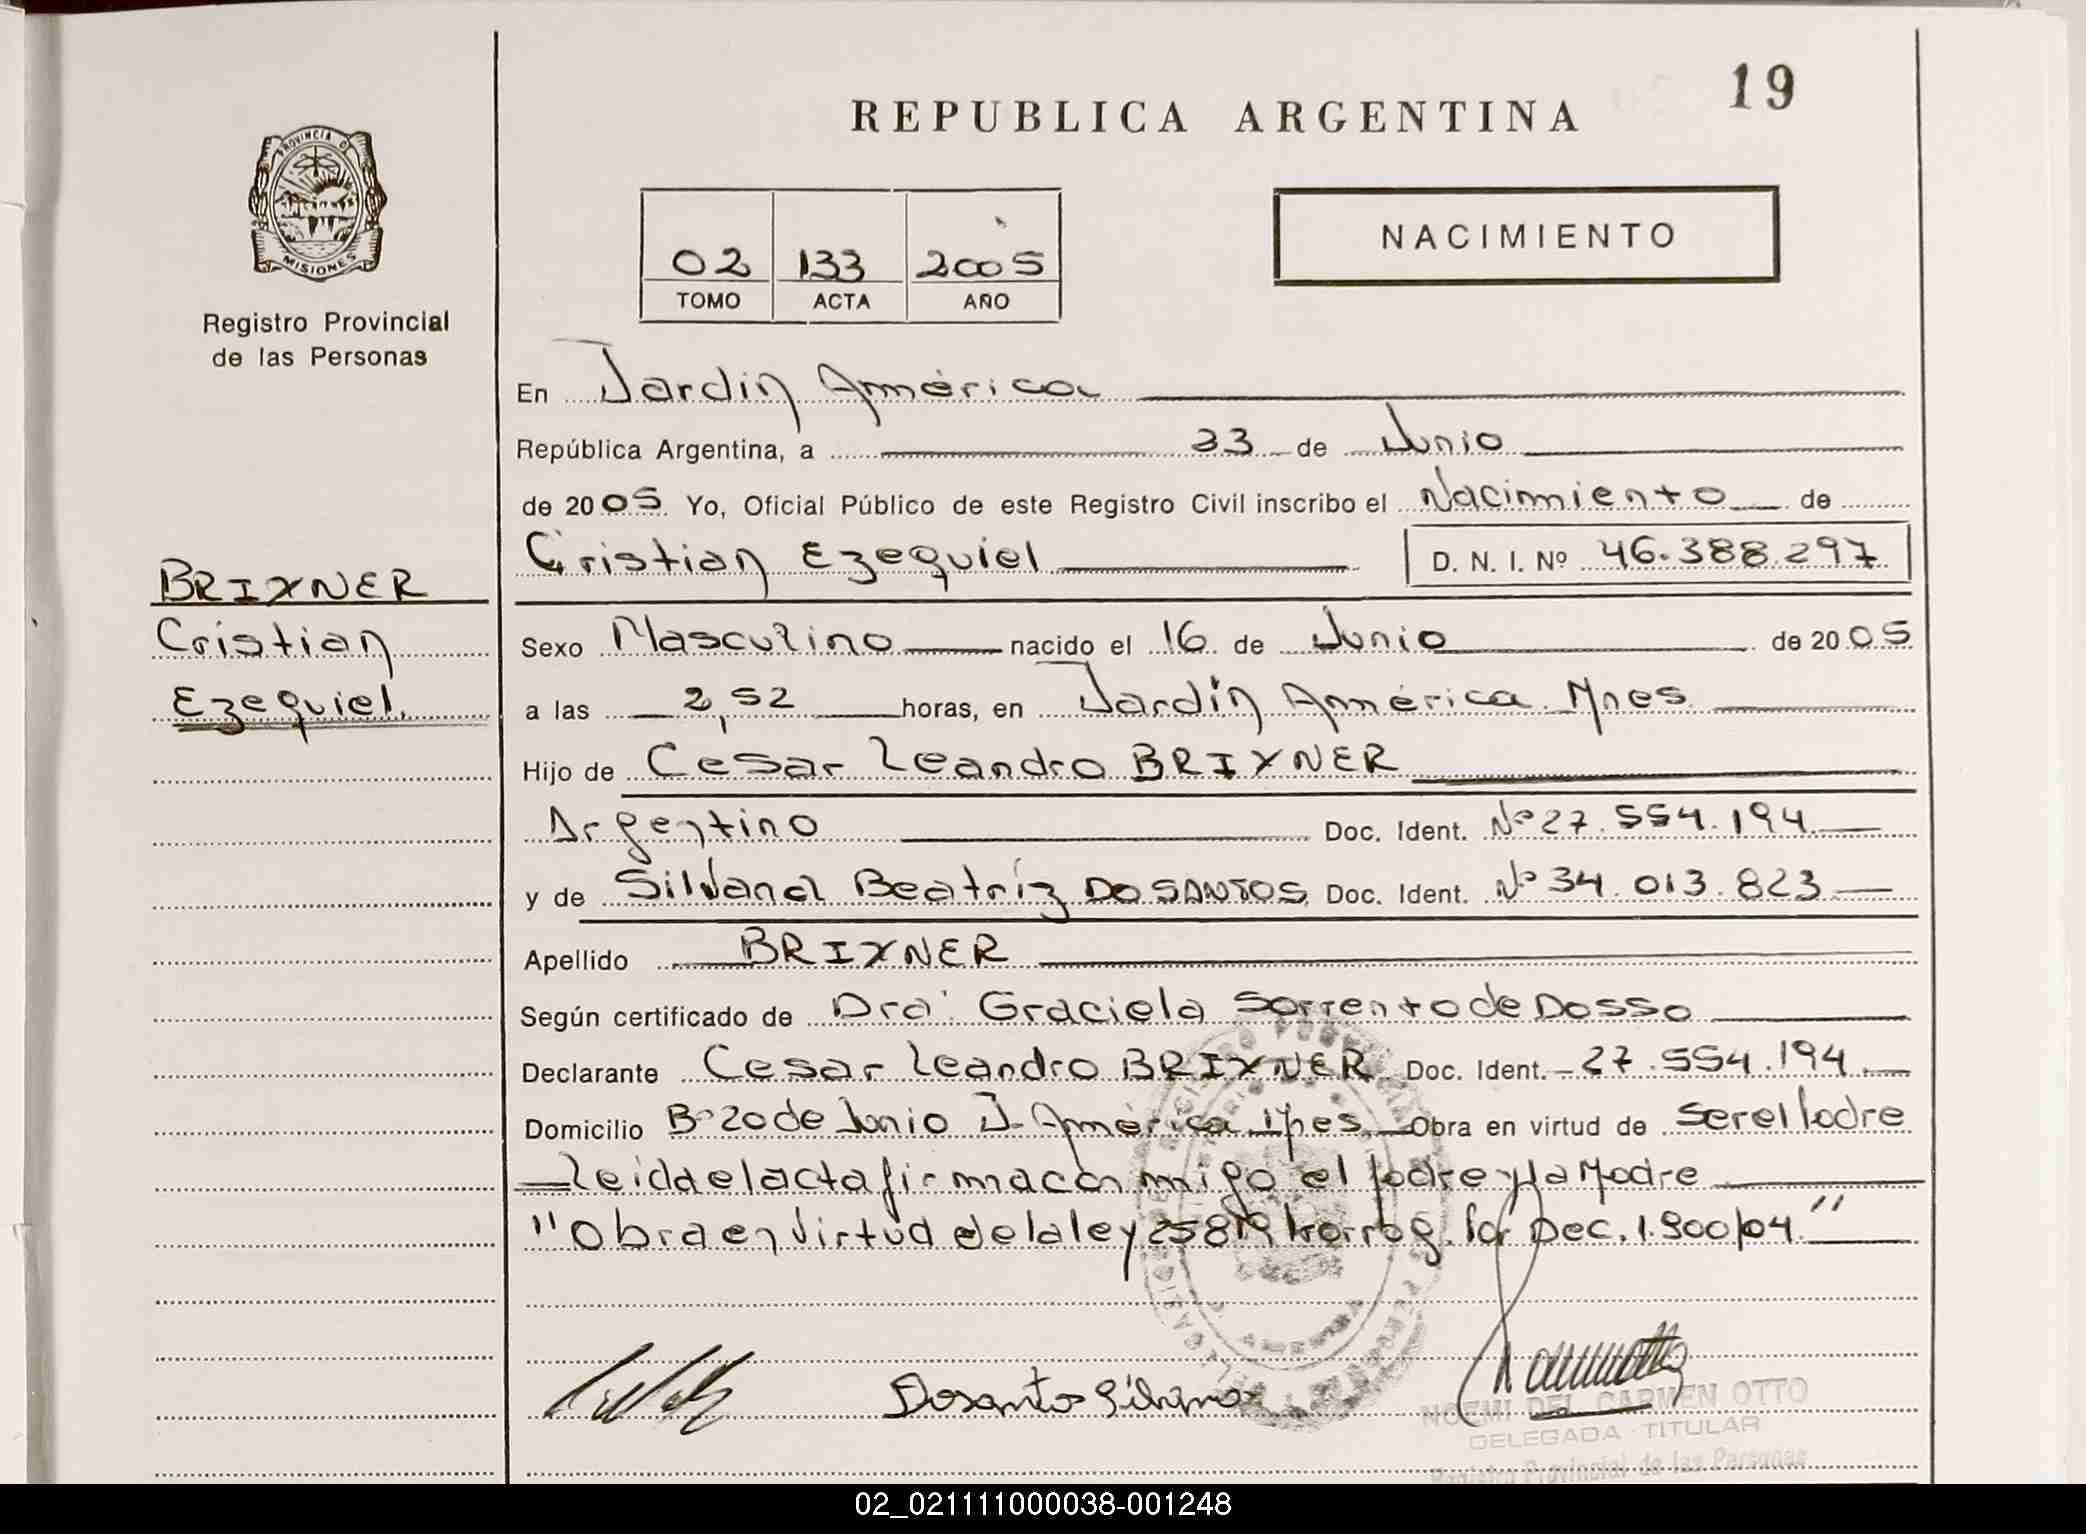 19
REPUBLICA ARGENTINA
PROVINCIA DE
MISIONES
Registro Provincial
de las Personas
02 133 2005
TOMO ACTA AÑO
NACIMIENTO
En Jardín América
República Argentina, a 23 de Junio
de 2005 Yo, Oficial Público de este Registro Civil inscribo el Nacimiento de
Cristian Ezequiel D. N. I. Nº 46.388.297
BRIXNER
Cristian
Ezequiel.
Sexo Masculino nacido el 16 de Junio de 2005
a las 2,52 horas, en Jardín América. Mnes.
Hijo de Cesar Leandro BRIXNER
Argentino Doc. Ident. Nº 27.554.194
y de Silvana Beatríz DOSANTOS Doc. Ident. Nº 34.013.823
Apellido BRIXNER
Según certificado de Dra. Graciela Sorrento de Dosso
Declarante Cesar Leandro BRIXNER Doc. Ident. 27.554.194
Domicilio Bº 20 de Junio J. América Mnes. Obra en virtud de ser el Padre
Leida el acta firma con migo el Padre y la Madre
"Obra en virtud de la ley 25819 Prorrog. Por Dec. 1.900/04."
Dosantos Silvana
NOEMI DEL CARMEN OTTO
DELEGADA TITULAR
Registro Provincial de las Personas
02_021111000038-001248